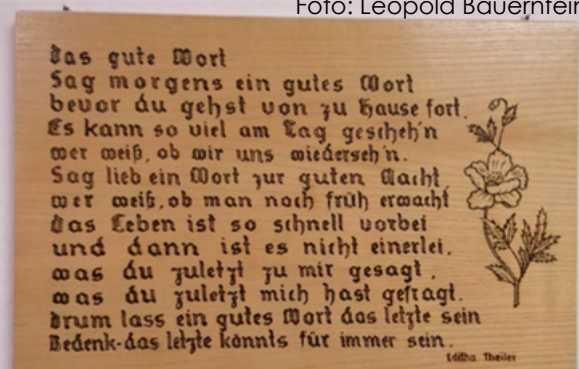 Foto: Leopold Bauernfein
das gute Wort
Sag morgens ein gutes Wort
bevor du gehst von zu Hause fort.
Es kann so viel am Tag gescheh'n
wer weiß, ob wir uns wiederseh'n.
Sag lieb ein Wort zur guten Nacht
wer weiß, ob man noch früh erwacht
das Leben ist so schnell vorbei
und dann ist es nicht einerlei.
was du zuletzt zu mir gesagt,
was du zuletzt mich hast gefragt.
drum lass ein gutes Wort das letzte sein
Bedenk-das letzte könnts für immer sein.
Editha Theiler